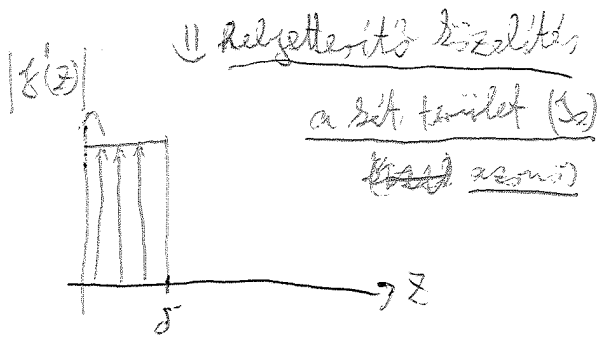 ⇓ Helyettesítő közelítés
|J(z)|
a két terület (Js)
azonos
z
δ